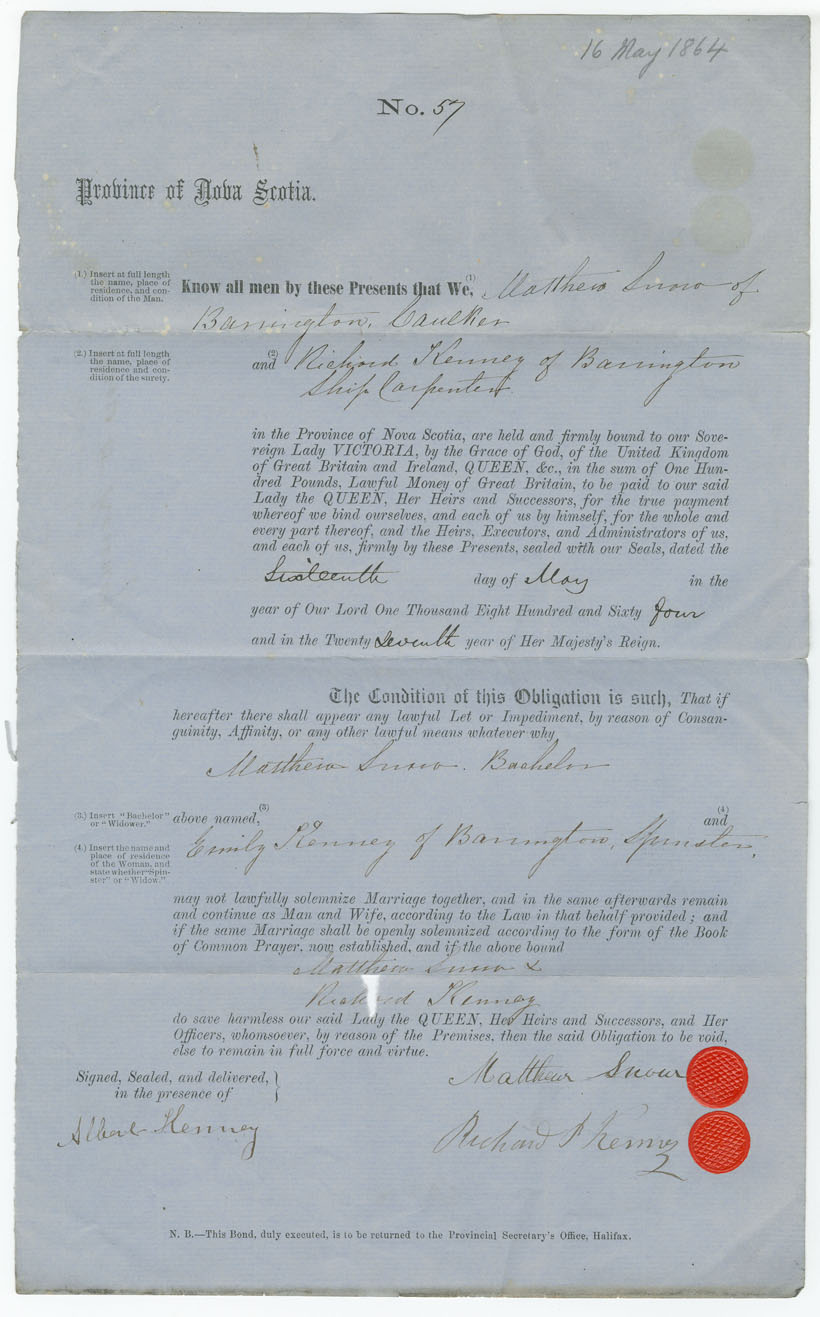 16 May 1864
No. 57
Province of Nova Scotia.
(1.) Insert at full length
the name, place of
residence, and con-
dition of the Man.
Know all men by these Presents that We, (1) Matthew Snow of
Barrington, Caulker
(2.) Insert at full length
the name, place of
residence and con-
dition of the surety.
and (2) Richard Kenney of Barrington
Ship Carpenter
in the Province of Nova Scotia, are held and firmly bound to our Sove-
reign Lady VICTORIA, by the Grace of God, of the United Kingdom
of Great Britain and Ireland, QUEEN, &c., in the sum of One Hun-
dred Pounds, Lawful Money of Great Britain, to be paid to our said
Lady the QUEEN, Her Heirs and Successors, for the true payment
whereof we bind ourselves, and each of us by himself, for the whole and
every part thereof, and the Heirs, Executors, and Administrators of us,
and each of us, firmly by these Presents, sealed with our Seals, dated the
Sixteenth day of May in the
year of Our Lord One Thousand Eight Hundred and Sixty four
and in the Twenty seventh year of Her Majesty's Reign.
The Condition of this Obligation is such, That if
hereafter there shall appear any lawful Let or Impediment, by reason of Consan-
guinity, Affinity, or any other lawful means whatever why
Matthew Snow. Bachelor
(3.) Insert "Bachelor"
or "Widower."
above named, (3) and (4)
(4.) Insert the name and
place of residence
of the Woman, and
state whether "Spin-
ster" or "Widow."
Emily Kenney of Barrington, Spinster,
may not lawfully solemnize Marriage together, and in the same afterwards remain
and continue as Man and Wife, according to the Law in that behalf provided; and
if the same Marriage shall be openly solemnized according to the form of the Book
of Common Prayer, now established, and if the above bound
Matthew Snow &
Richard Kenney
do save harmless our said Lady the QUEEN, Her Heirs and Successors, and Her
Officers, whomsoever, by reason of the Premises, then the said Obligation to be void,
else to remain in full force and virtue.
Signed, Sealed, and delivered,
in the presence of
Matthew Snow
Albert Kenney
Richard Kenney
N. B.—This Bond, duly executed, is to be returned to the Provincial Secretary's Office, Halifax.